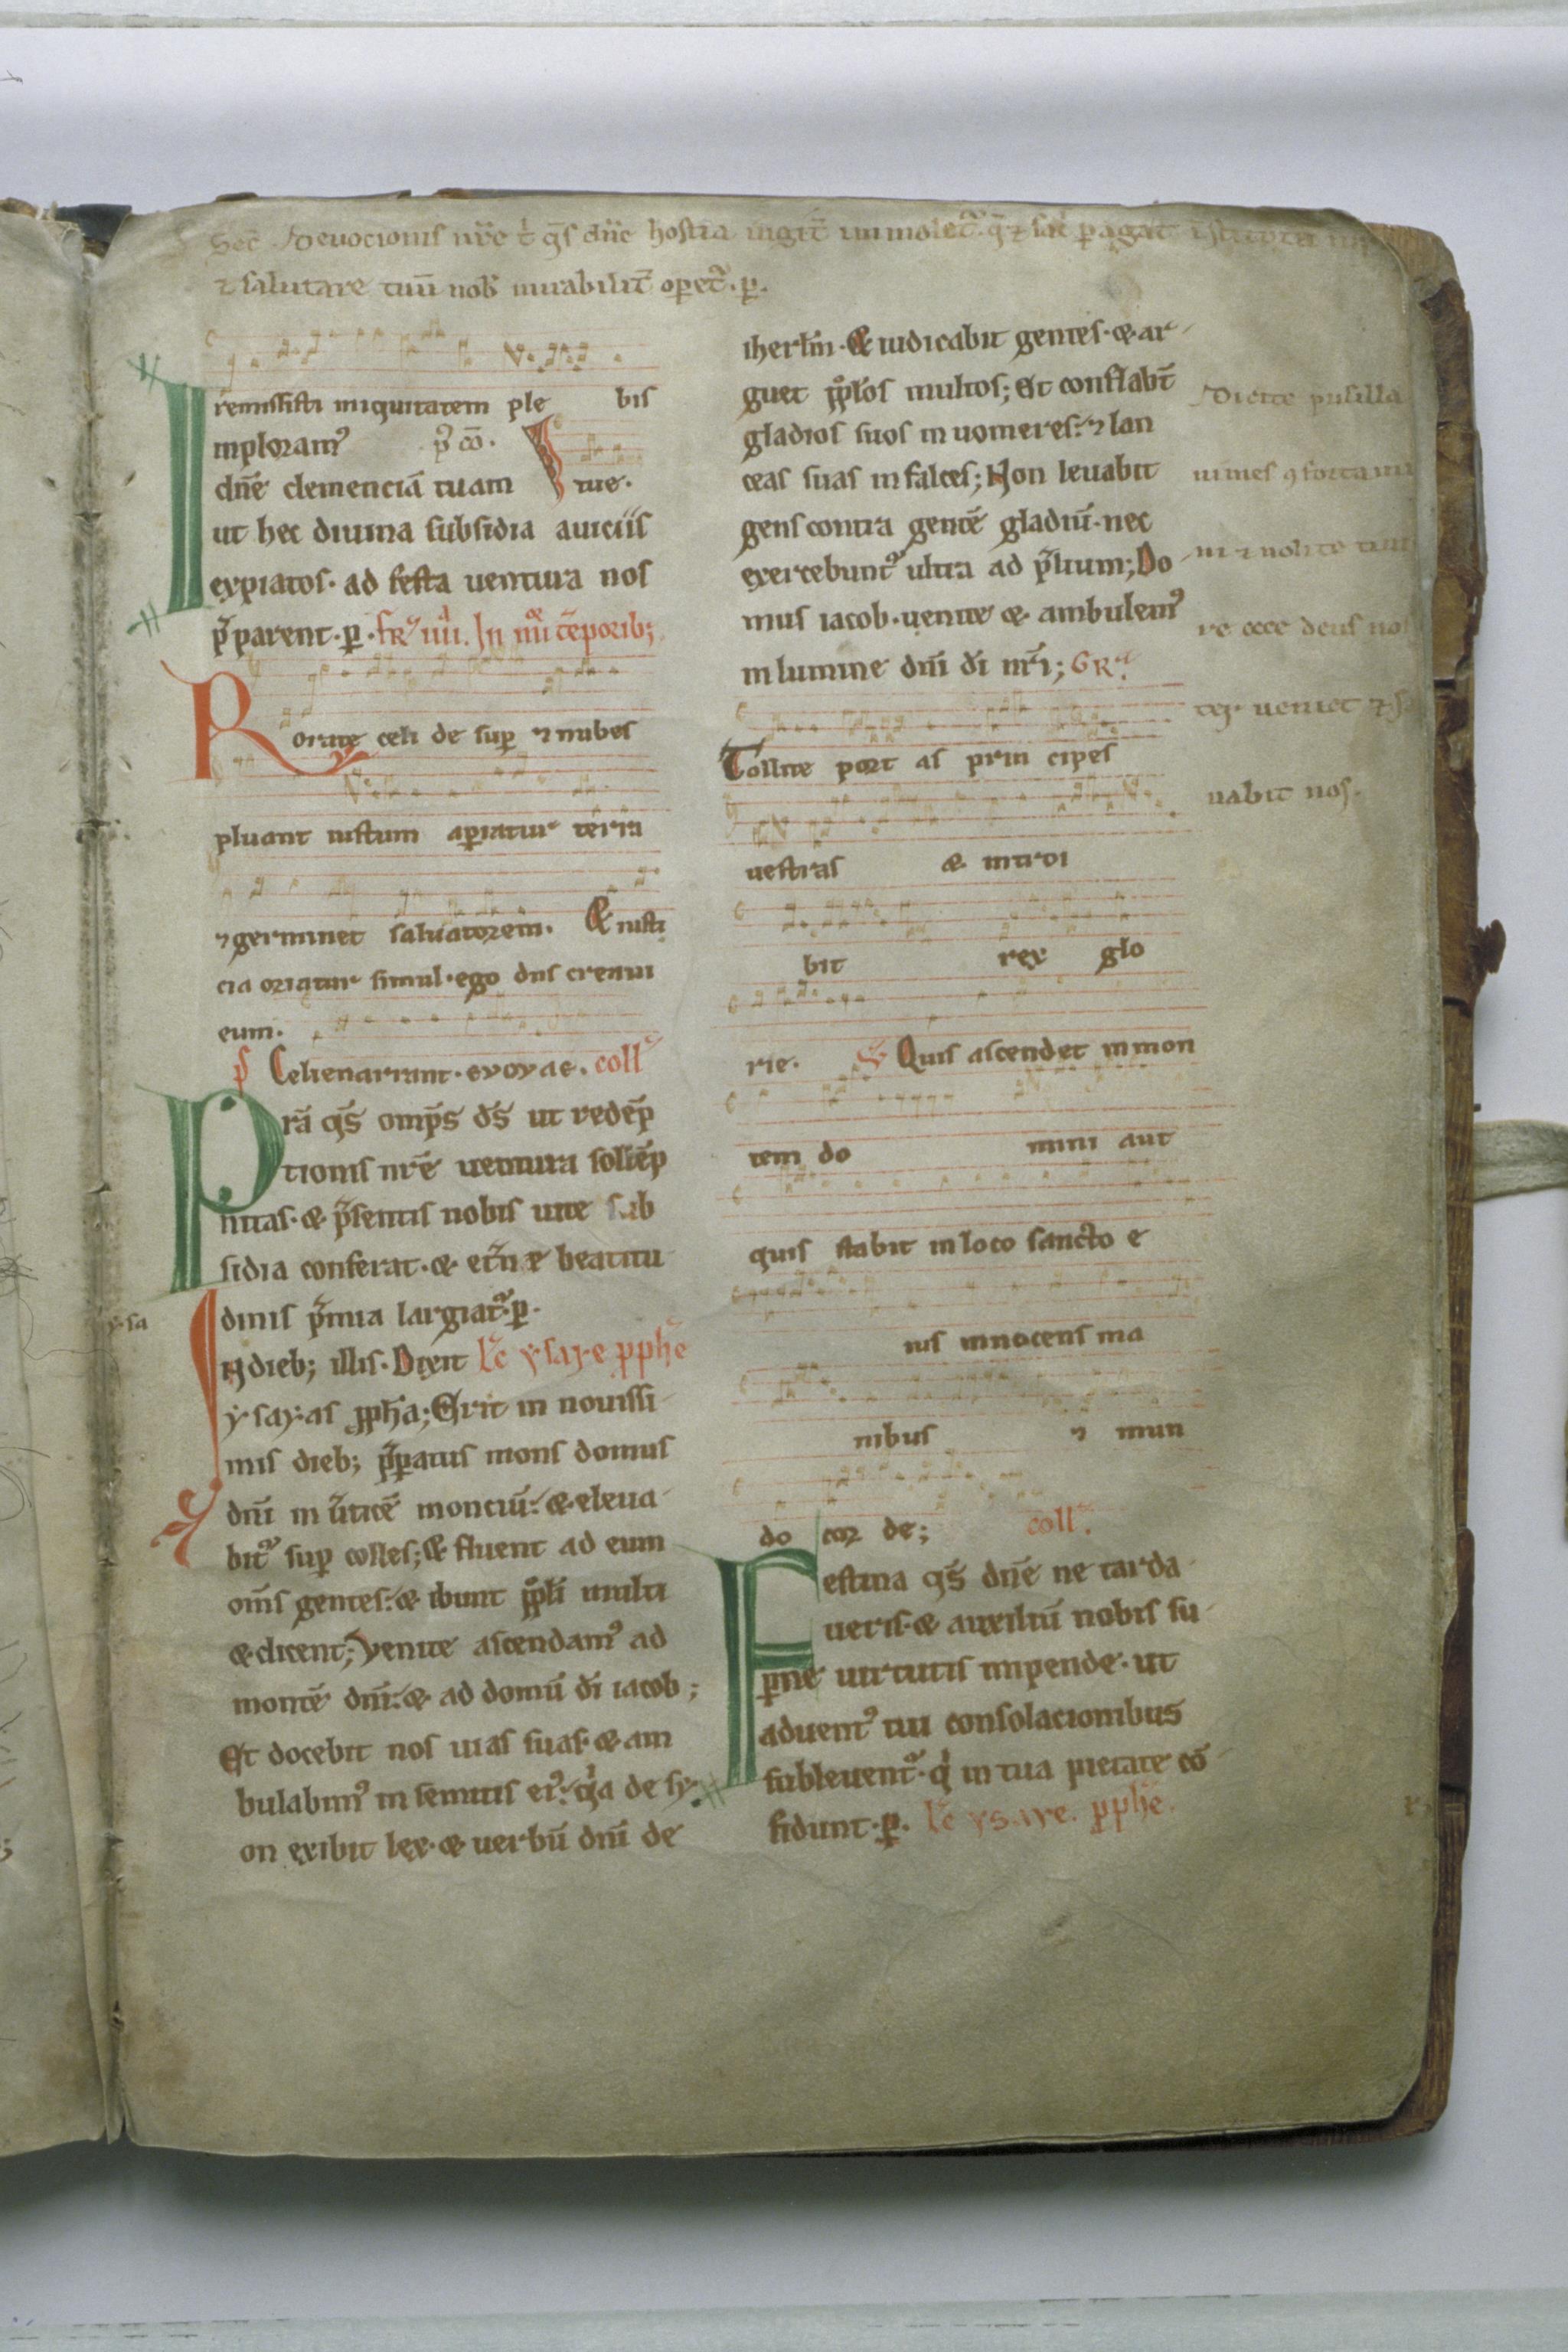 Sec̄ Deuocionis nr̄e t̓ qs̄ dn̄e hostia iugit̄ immolet᷑ q̄ ⁊ sac̓ ꝑagat īstituta
⁊ salutare tuū nob̓ mirabilit̓ oꝑet᷑. ꝑ.
remisisti iniquitatem ple bis
mploram᷒ p᷒ cō. tue.
dn̄e clemenciā tuam
ut hec diuina subsidia auiciis
expiatos. ad festa uentura nos
p̄parent. ꝑ. fr̄ iiii. In iiii tēporib;
Rorate celi de suꝑ ⁊ nubes
pluant iustum aꝑiatur terra
⁊ germinet saluatorem. Et iusti
cia oriatur simul. ego dn̄s creaui
eum.
p̄ Celi enarrant. evovae. coll̄
Prā qs̄ omp̄s ds̄ ut redēp
tionis nr̄e uentura sollēp
nitas. & p̄sentis nobis uite sub
sidia conferat. & et̄ne beatitu
dinis p̄mia largiat᷑. ꝑ.
y. sa
In dieb; illis. Dixit lc̄ ysaye ꝓphe
ysayas ꝓph̄a; Erit in nouissi
mis dieb; p̄paratus mons domus
dn̄i in u̓ticē monciū. & eleua
bit᷑ suꝑ colles; & fluent ad eum
om̄s gentes. & ibunt ppl̓i multi
& dicent; Venite ascendam᷒ ad
montē dn̄i. & ad domū dī iacob;
Et docebit nos uias suas. & am
bulabim᷒ in semitis ei᷒. q̓a de sy
on exibit lex. & uerbū dn̄i de
iherl̄m. Et iudicabit gentes. & ar
guet ppl̓os multos; Et conflabt̄
gladios suos in uomeres. ⁊ lan
ceas suas in falces; Non leuabit
gens contra gentē gladiū. nec
exercebunt᷑ ultra ad p̄lium; Do
mus iacob. uenite & ambulem᷒
in lumine dn̄i dī nr̄i; GR̄.
Tollite port as prin cipes
uestras & introi
bit rex glo
rie. V̄ Quis ascendet in mon
tem do mini aut
quis stabit in loco sancto e
ius innocens ma
nibus ⁊ mun
do cor de; coll̄.
Festina qs̄ dn̄e ne tarda
ueris. & auxiliū nobis su
ꝑne uirtutis impende. ut
aduent᷒ tui consolacionibus
subleuent᷑. q̓ in tua pietate cō
fidunt. ꝑ. lc̄ ysaye. ꝓphe.
Dicite pusilla
nimes ꝯfortami
ni ⁊ nolite tim
re ecce deus nos
ter ueniet ⁊ sa
uabit nos.